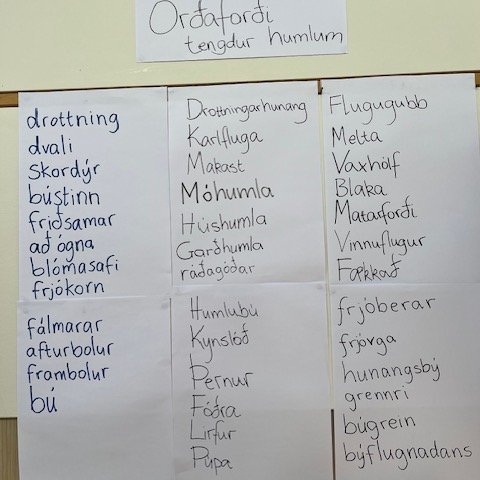 Orðaforði
tengdur humlum
drottning
dvali
skordýr
bústinn
friðsamar
að ógna
blómasafi
frjókorn
fálmarar
afturbolur
frambolur
bú
Drottningarhunang
Karlfluga
Makast
Móhumla
Húshumla
Garðhumla
ráðagóðar
Humlubú
Kynslóð
Þernur
Fóðra
Lirfur
Púpa
Flugugubb
Melta
Vaxhólf
Blaka
Matarforði
Vinnuflugur
Fækkað
frjóberar
frjóvga
hunangsbý
grennri
búgrein
býflugnadans